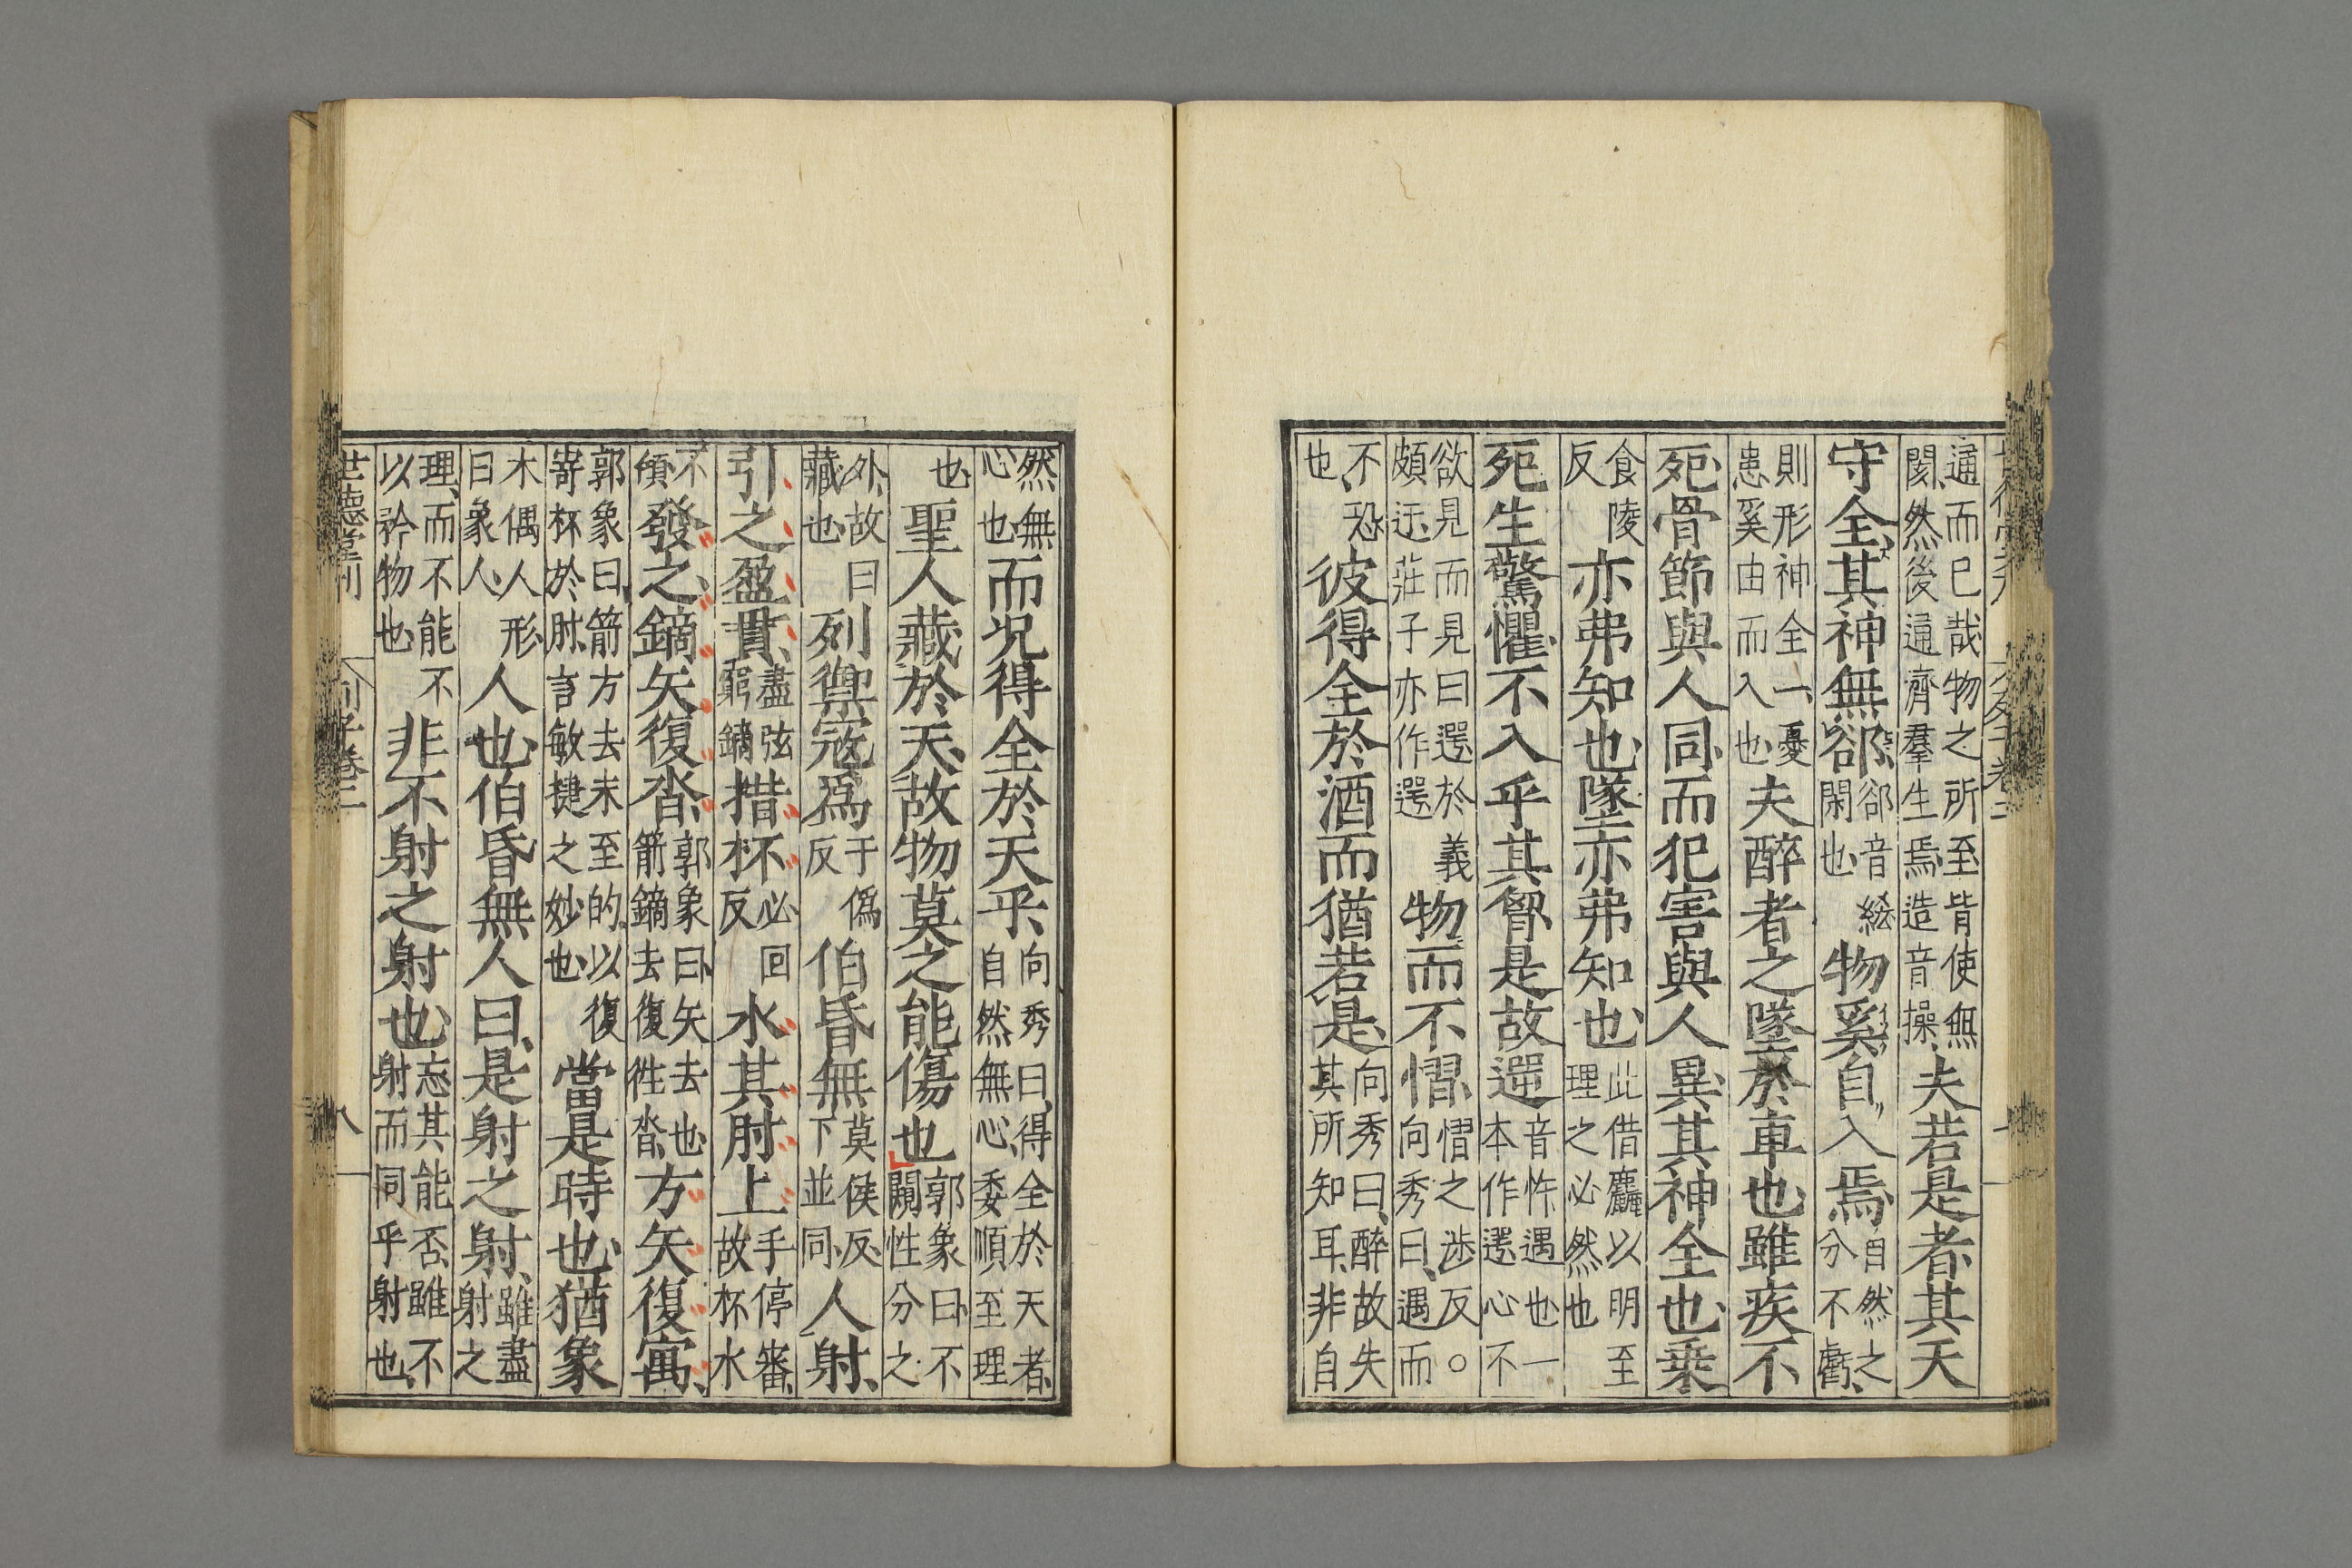 通而已哉物之所至皆使無
閡然後通濟羣生焉造音操夫若是者其天
守全其神無郤郤音綌
閑也物奚自入焉自然之
分不虧
則形神全一憂
患奚由而入也夫醉者之墜於車也雖疾不
死骨節與人同而犯害與人異其神全也乗
食陵
反亦弗知也墜亦弗知也此借麤以明至
理之必然也
死生驚懼不入乎其胷是故遻音忤遇也一
本作遻心不
欲見而見曰遻於義
頗迃莊子亦作遻物而不慴慴之涉反○
向秀曰遇而
不恐
也彼得全於酒而猶若是向秀曰醉故失
其所知耳非自
然無
心也而况得全於天乎向秀曰得全於天者
自然無心委順至理
也聖人藏於天故物莫之能傷也郭象曰不
闚性分之
外故曰
藏也列禦寇爲于偽
反伯昏無莫侯反
下並同人射
引之盈貫盡弦
窮鏑措杯必回
反水其肘上手停審
故杯水
不
傾發之鏑矢復沓郭象曰矢去也
箭鏑去復往沓方矢復寓
郭象曰箭方去未至的以復
寄杯於肘言敏捷之妙也當是時也猶象
木偶人形
曰象人人也伯昏無人曰是射之射雖盡
射之
理而不能不
以矜物也非不射之射也忘其能否雖不
射而同乎射也
世德堂刊 列子卷二 八